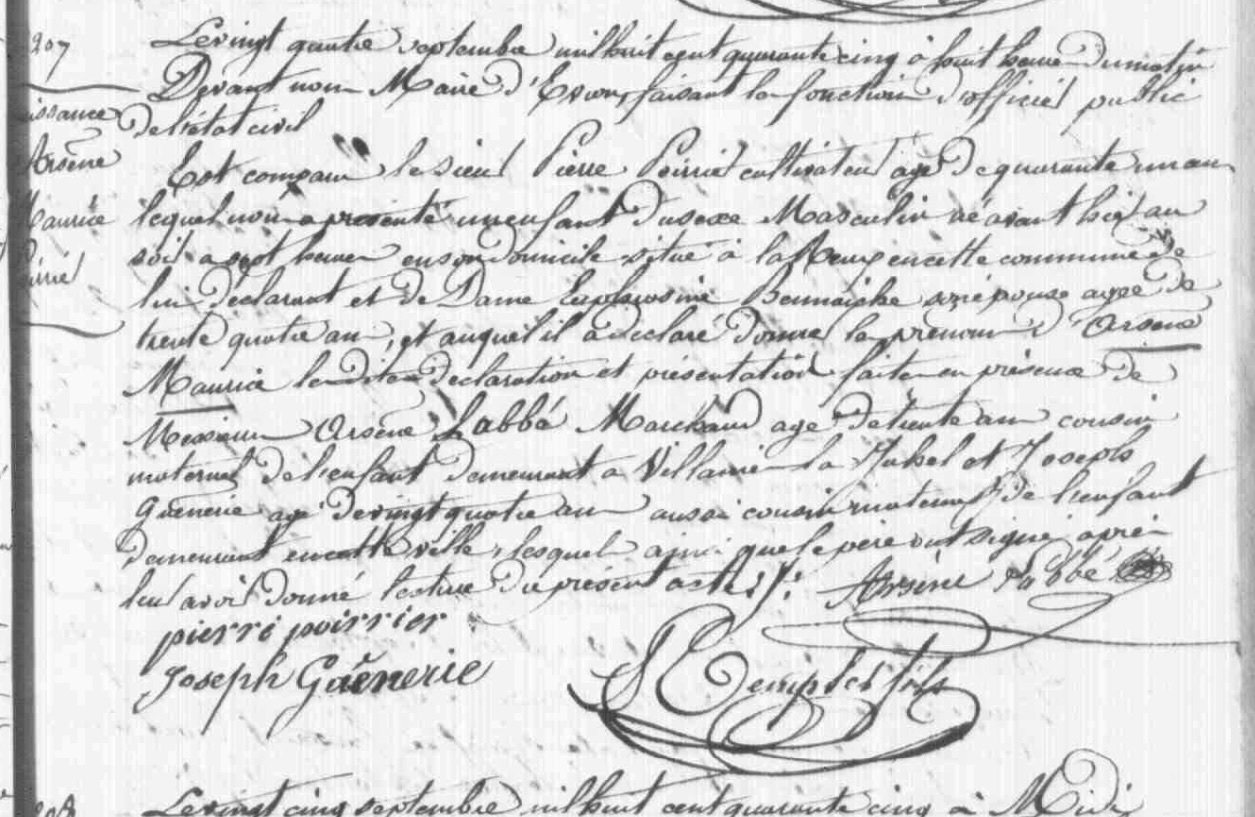 207
Le vingt quatre septembre mil huit cent quarante cinq à huit heures du matin
Devant nous Maire d'Evron, faisant les fonctions d'officier public
issance
de l'état civil
Arsène
Est comparu le sieur Pierre Poirrier cultivateur agé de quarante un ans
Maurice
lequel nous a presenté un enfant du sexe Masculin né avant hier au
soir a sept heures en son domicile situé à en cette commune de
lui déclarant et de Dame son épouse agée de
trente quatre ans, et auquel il a declaré donner les prenoms d'Arsène
Maurice les dites declaration et présentation faites en présence de
Messieurs Arsène Labbé Marchand agé de trente ans cousin
maternel de l'enfant demeurant a Villaines la Juhel et Joseph
Guènerie agé de vingt quatre ans aussi cousin maternel de l'enfant
demeurant en cette ville, lesquels ainsi que le pere ont signé après
leur avoir donné lecture du présent acte ./. Arsène Labbé
pierre poirrier
Joseph Guènerie
fils
208
Le vingt cinq septembre mil huit cent quarante cinq à Midi